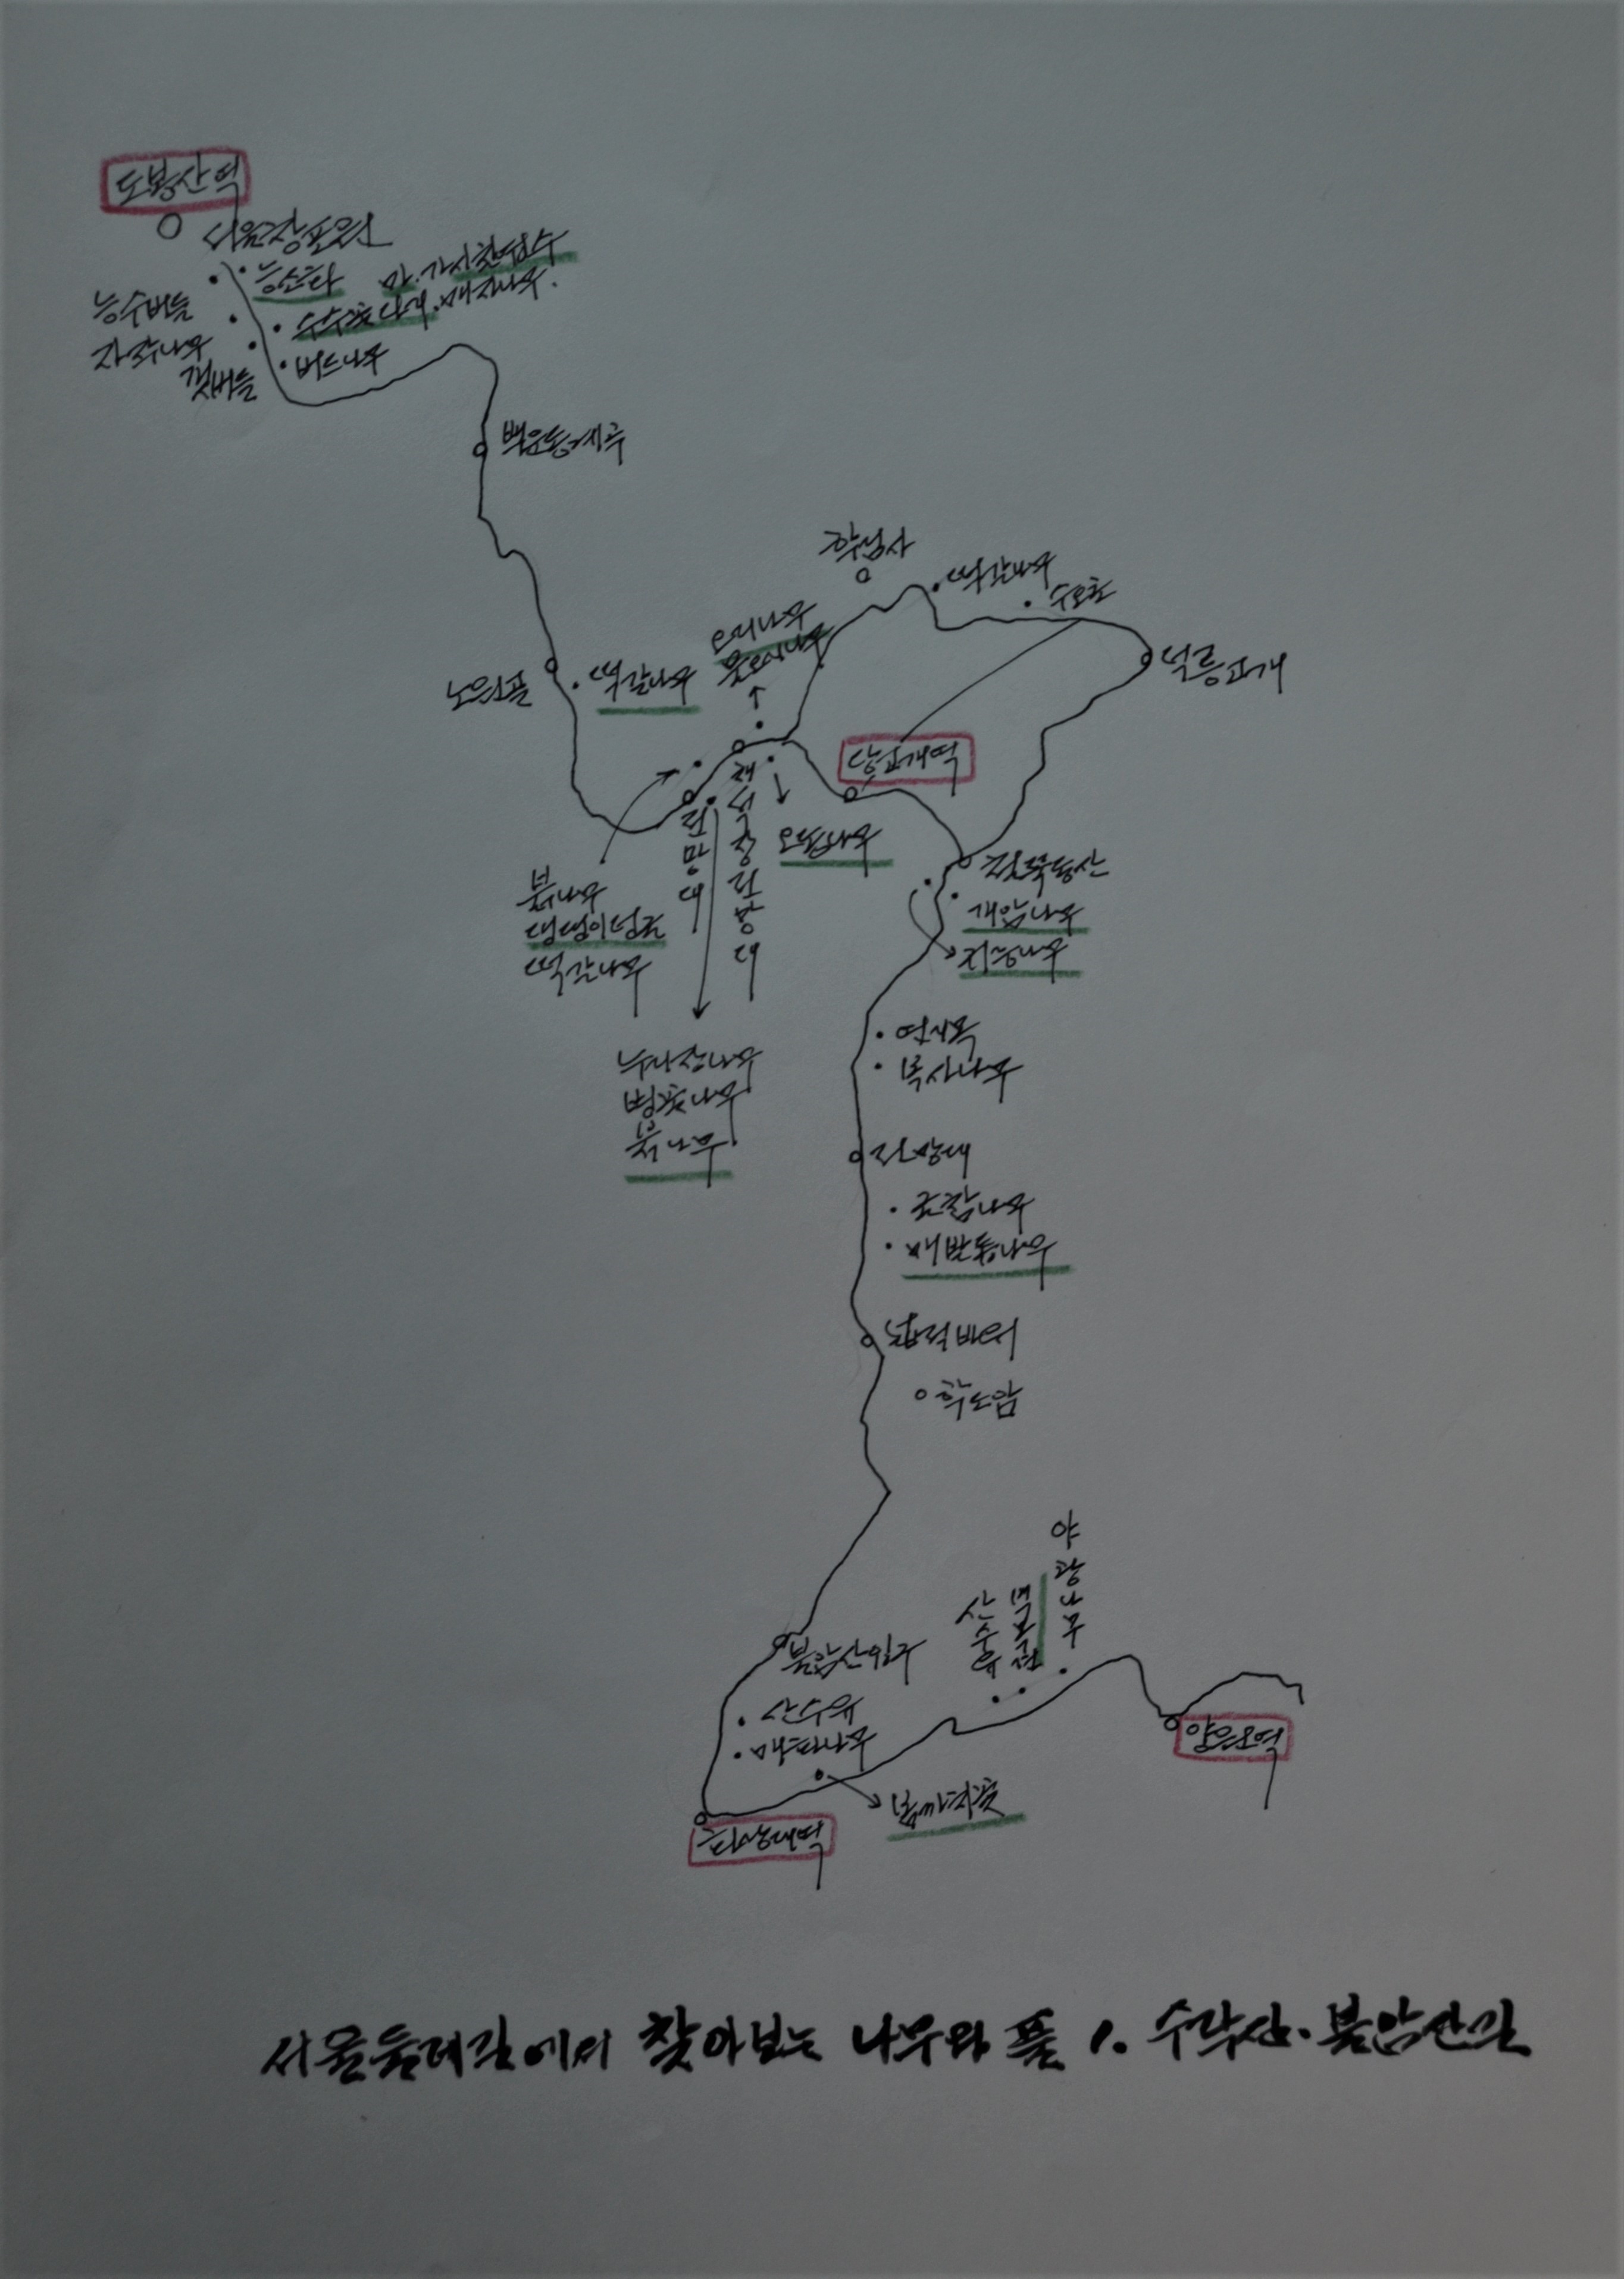 도봉산역
서울창포원
능소화 마.가시칠엽수
능수버들
수수꽃다리.매자나무.
자작나무
버드나무
갯버들
백운동계곡
학림사
떡갈나무
수호초
오리나무
물오리나무
노원골
떡갈나무
덕릉고개
당고개역
전망대
채석장전망대
오동나무
붉나무
댕댕이덩굴
떡갈나무
철쭉동산
개암나무
귀룽나무
누리장나무
병꽃나무
붉나무
복사나무
전망대
조팝나무
때발톱나무
넓적바위
학도암
야광나무
산수유
불암산입구
산수유
화랑대역
봄까치꽃
양원역
서울둘레길에서 찾아보는 나무와 풀 1. 수락산.불암산길